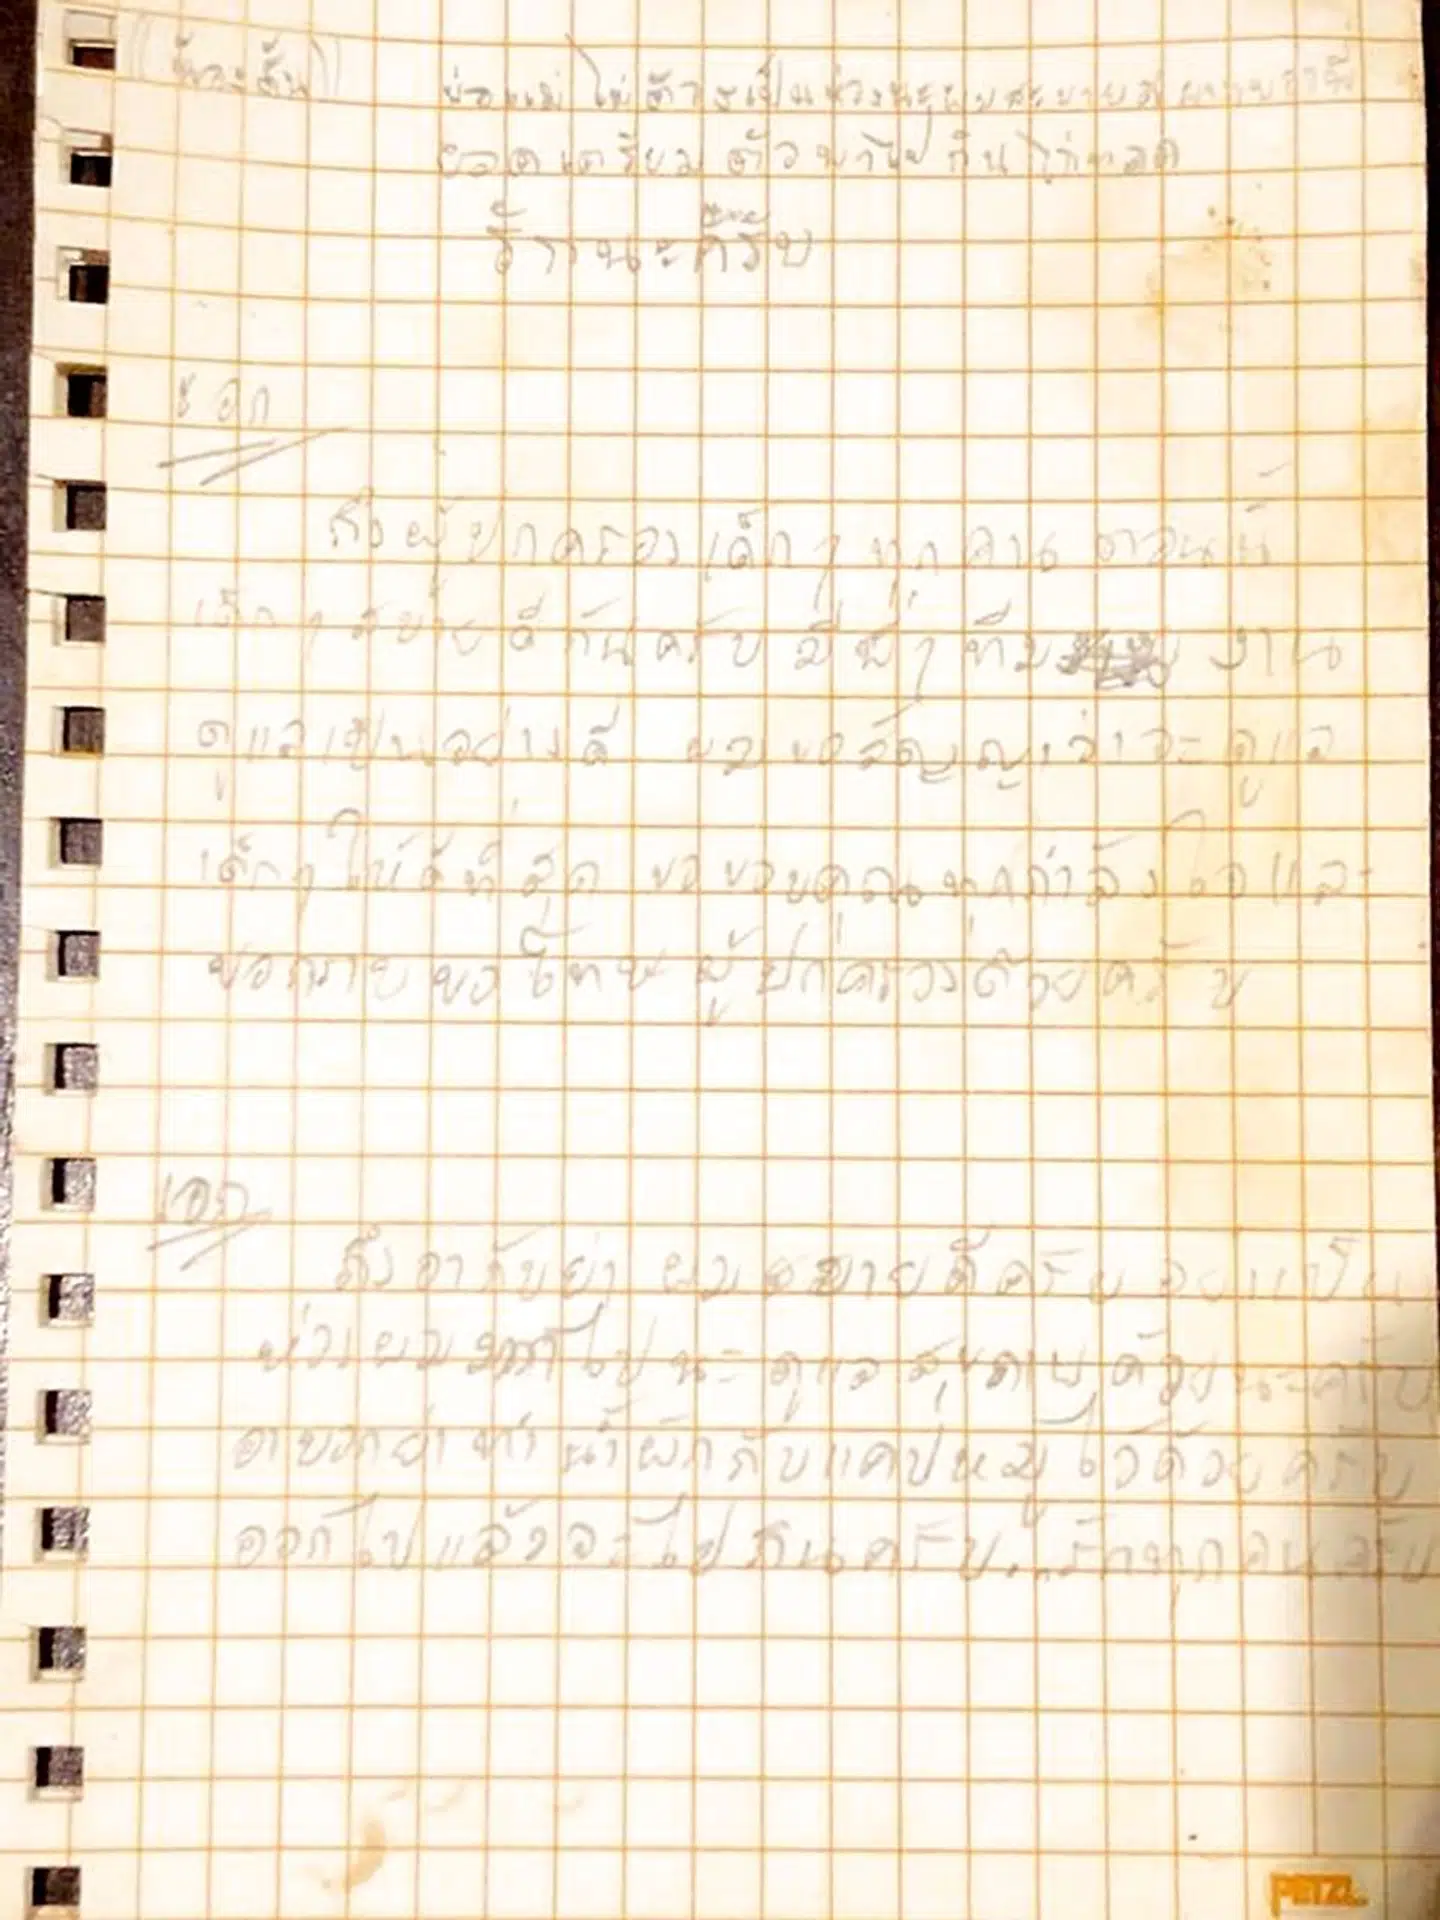 (น้องตั้น)
พ่อแม่ ไม่ต้องเป็นห่วงนะผมสบายดี
ยอดเตรียมตัวพาไปกินไก่ทอด
ด้วนะครับ
เอก
ถึงผู้ปกครองเด็กๆ ทุกคน ตอนนี้
เด็กๆ สบายดีกันครับ มีพี่ๆ ทีม งาน
ดูแลเป็นอย่างดี ผมขอสัญญาว่าจะดูแล
เด็กๆ ให้ดีที่สุด ขอขอบคุณทุกกำลังใจและ
ขอกราบขอโทษผู้ปกครองด้วยครับ
เอก
ถึงอากับย่า ผมสบายดีครับ อย่าเป็น
ห่วงผมมากไปนะ ดูแลสุขภาพด้วยนะครับ
อาบอกย่าทำน้ำผักกับแคปหมูไว้ด้วยครับ
ออกไปแล้วจะไปกินครับ...รักทุกคนครับ
PETZL